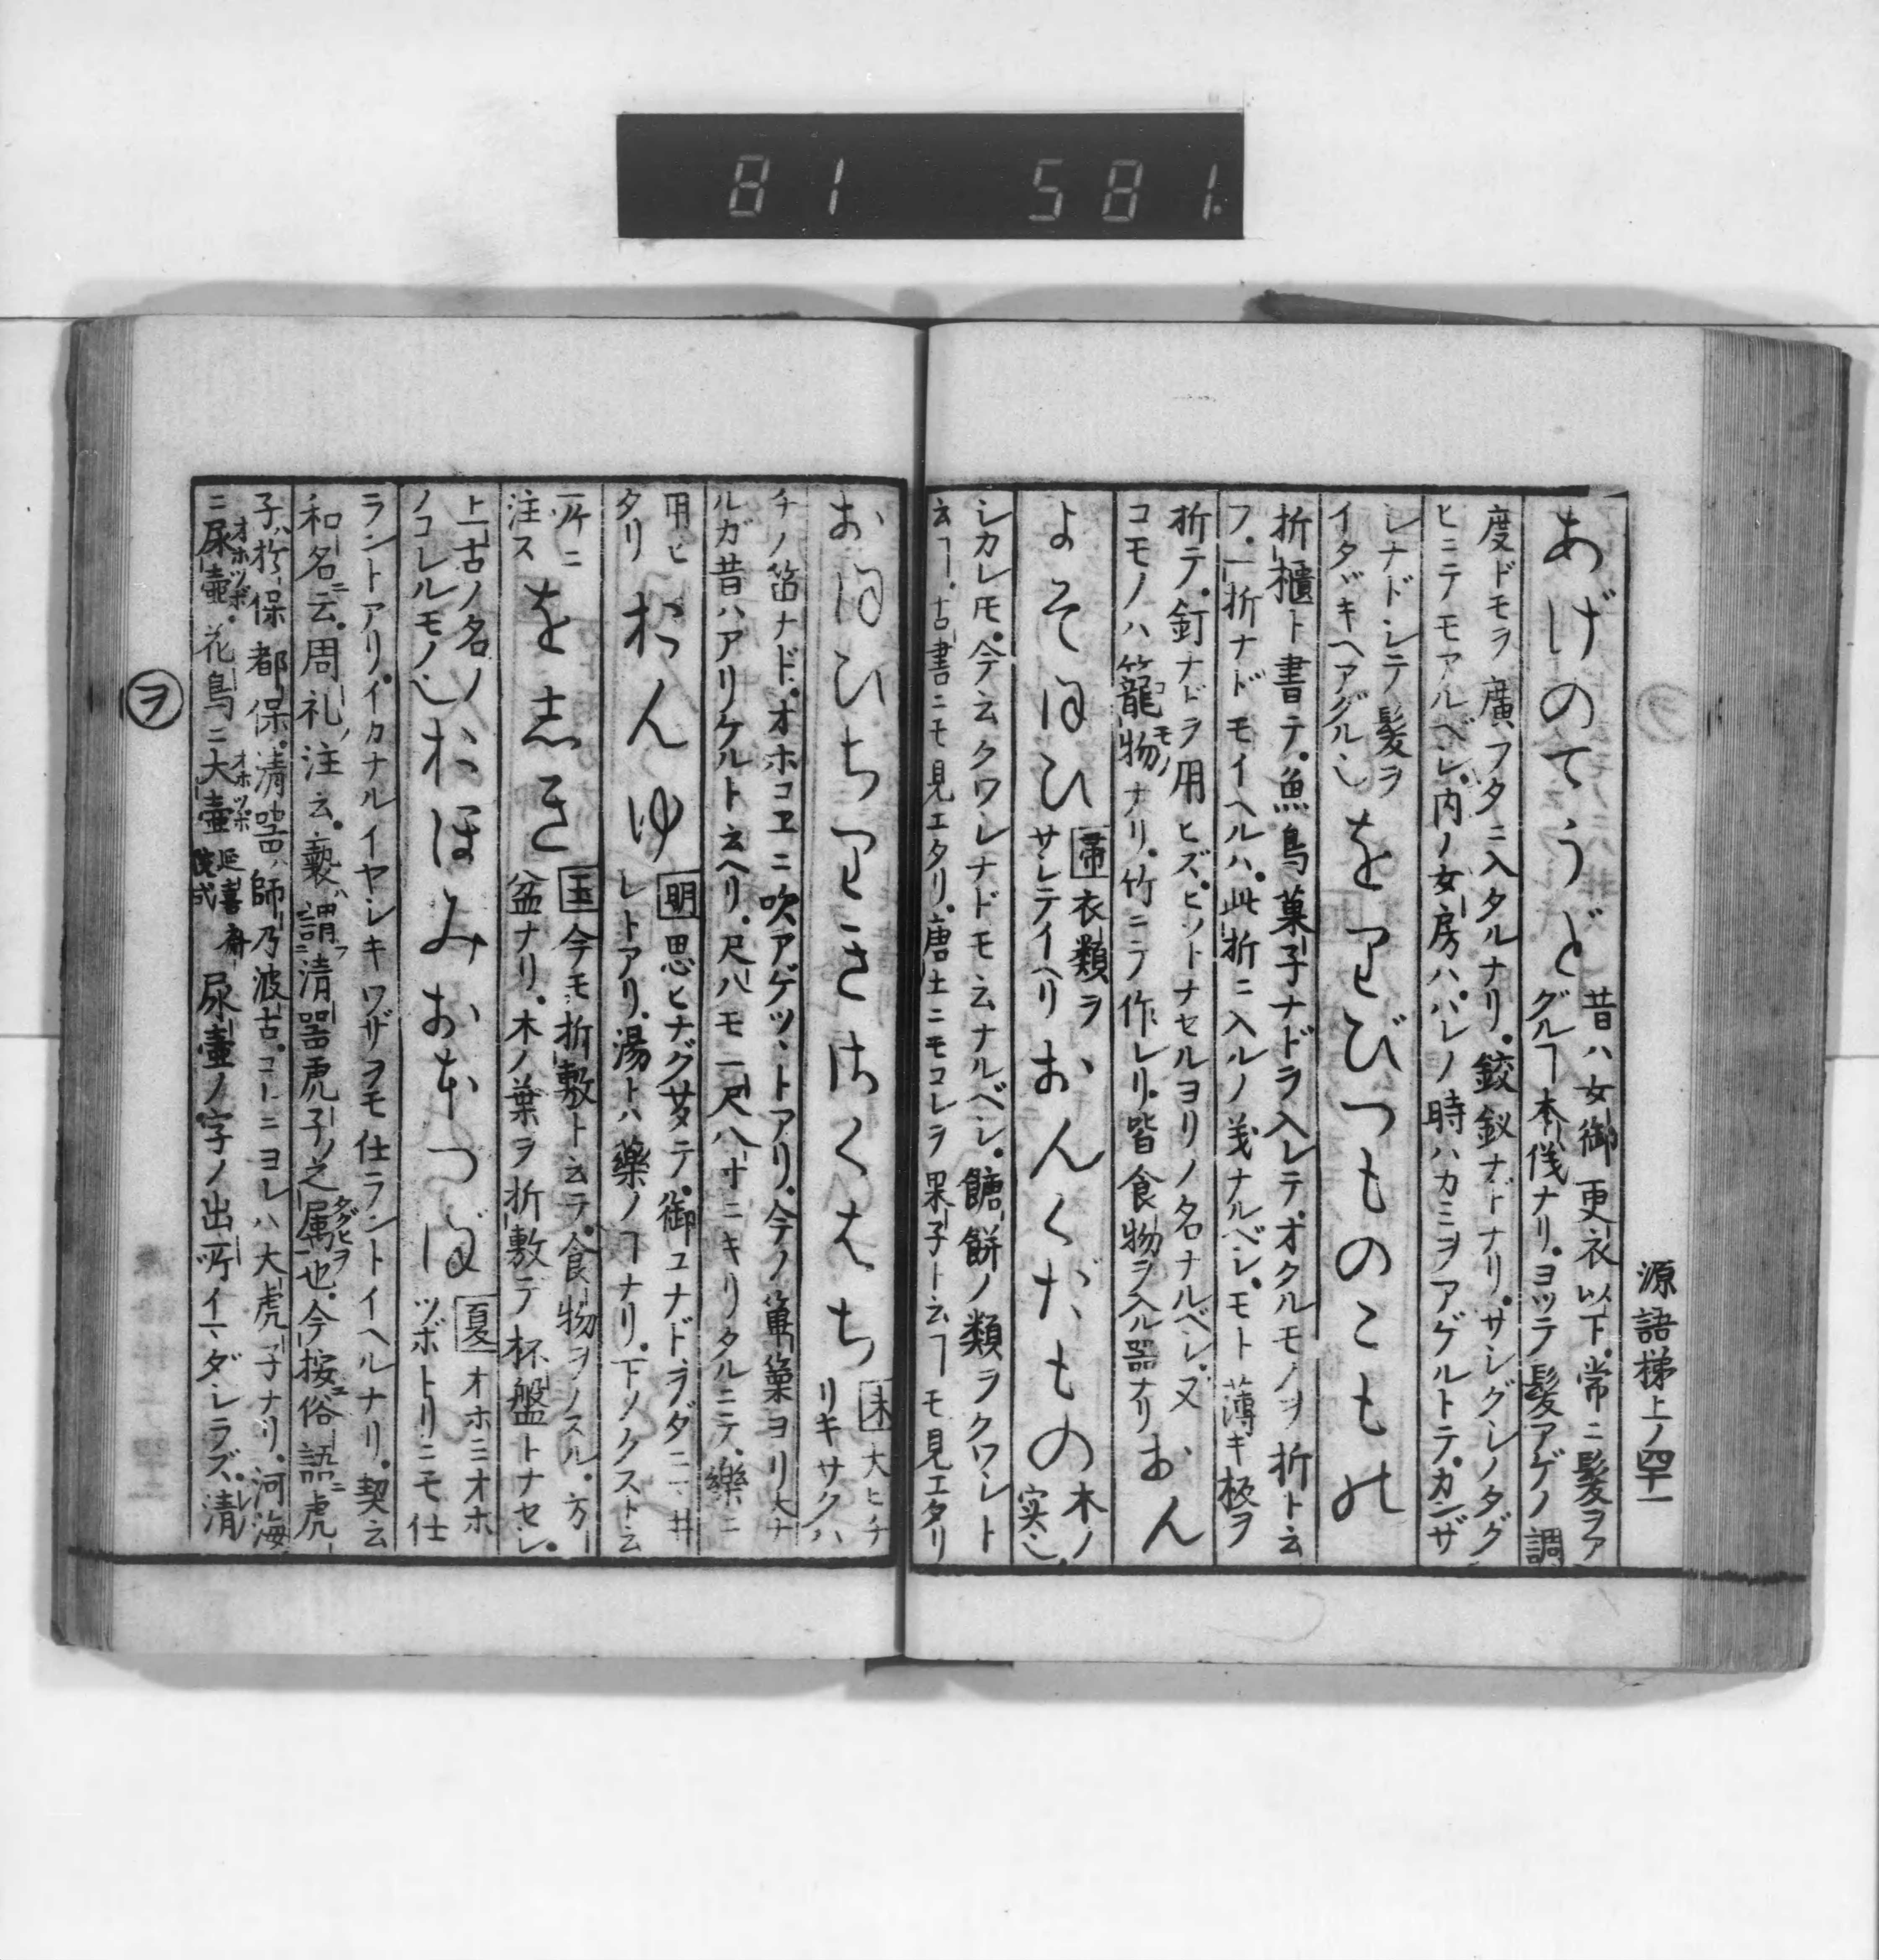 81 581.
源語梯上ノ四十一
あげのてうど
昔ハ女御更衣以下常ニ髪ヲア
グルヿ本儀ナリ.ヨッテ髪アゲノ調
度ドモヲ廣フタニ入タルナリ.鈫釵ナドナリ.サシグシノタグ
ヒニテモアルベシ.内ノ女房ハ.ハレノ時ハカミヲアゲルトテ.カンザ
シナドシテ髪ヲ
イタヾキヘアグル也
をりびつものこもの
折櫃ト書テ.魚鳥菓子ナドヲ入レテ.オクルモノヲ折ト云
フ.一折ナドモイヘルハ.此折ニ入ルノ義ナルベシ.モト薄キ板ヲ
折テ.釘ナドヲ用ヒズ.ヒツトナセルヨリノ名ナルベシ.又
コモノハ籠物ナリ.竹ニテ作レリ.皆食物ヲ入ル器ナリ
コモノ
おん
よそほひ
帚衣類ヲ
サシテイヘリ
おんくだもの
木ノ
実也.
シカレ𪜈.今云クワシナドモ云ナルベシ.餹餅ノ類ヲクワシト
云ヿ.古書ニモ見エタリ.唐土ニモコレヲ果子ト云ヿモ見エタリ
おほひちりきさくはち
末大ヒチ
リキサクハ
チノ笛ナド.オホコヱニ吹アゲツヽトアリ.今ノ篳篥ヨリ大ナ
ルガ昔ハアリケルト云ヘリ.尺八モ一尺八寸ニキリタルニテ.樂ニ
用ヒ
タリ
おんゆ
明思ヒナグサメテ.御ユナドヲダニ井
レトアリ.湯トハ藥ノヿナリ.下ノクスト云
所ニ
注ス
をしき
玉今モ折敷ト云ラ.食物ヲノスル.方
盆ナリ.木ノ葉ヲ折敷テ杯盤トナセシ.
上古ノ名ノ
ノコレルモノ也
おほみおほつぼ
夏オホミオホ
ツボトリニモ仕
ラントアリ.イカナルイヤシキワザヲモ仕ラントイヘルナリ.契云
和名ニ云.周礼ノ注云.褻器謂清器虎子ノ之属也.今按俗語ニ虎
タグヒヲ
子ハ於保都保.清器ハ師乃波古.コレニヨレハ大虎子ナリ.河海
ニ尿壷.花鳥ニ大壷延喜斎院式尿壷ノ字ノ出所イマダシラズ.清
オホツボ
オホツボ
ヲ